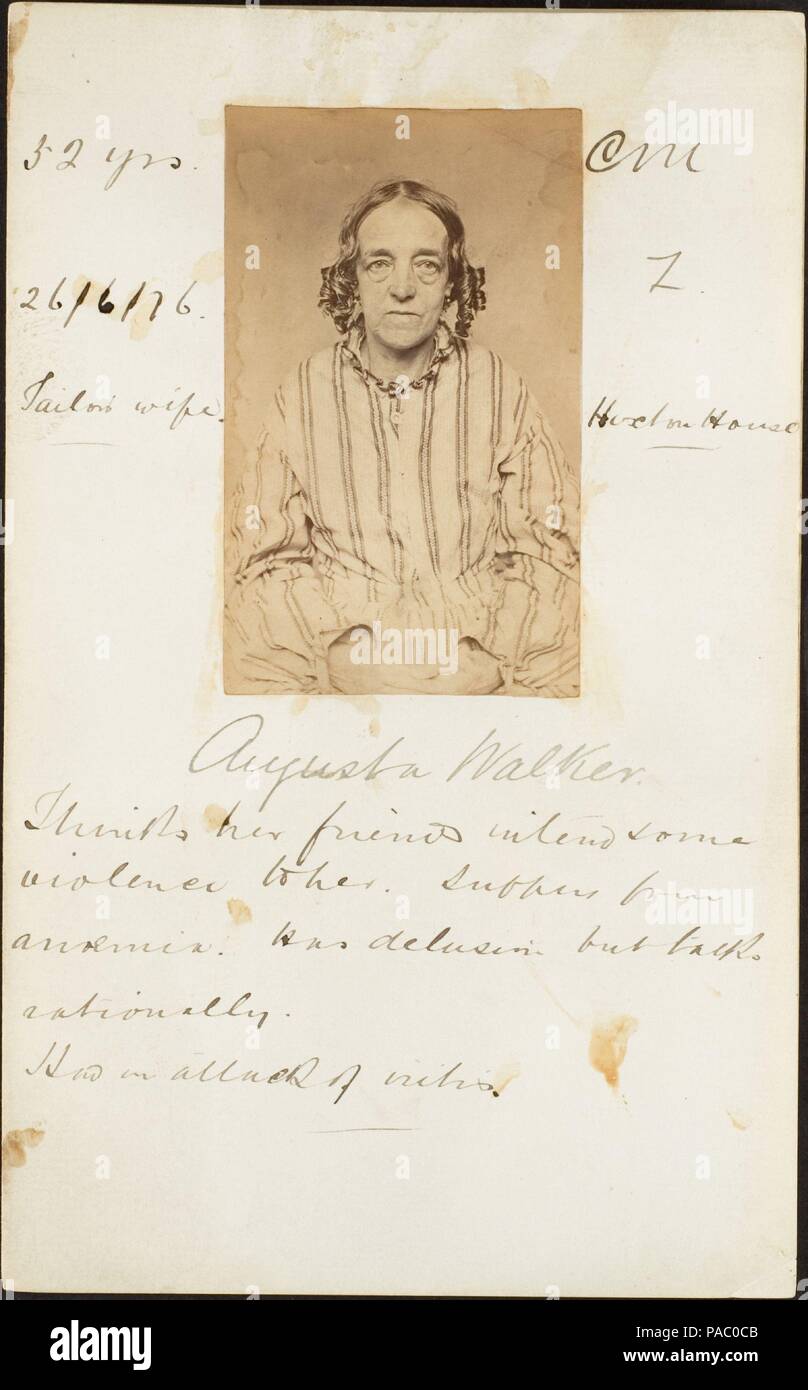 52 yrs.
CM
26/6/76.
Tailor's wife.
Hoxton House
Augusta Walker.
Thinks her friends intend some
violence to her. Suffers from
anæmia. Has delusion but talks
rationally.
Had an attack of iritis.
alamy
Image ID: PAC0CB
www.alamy.com